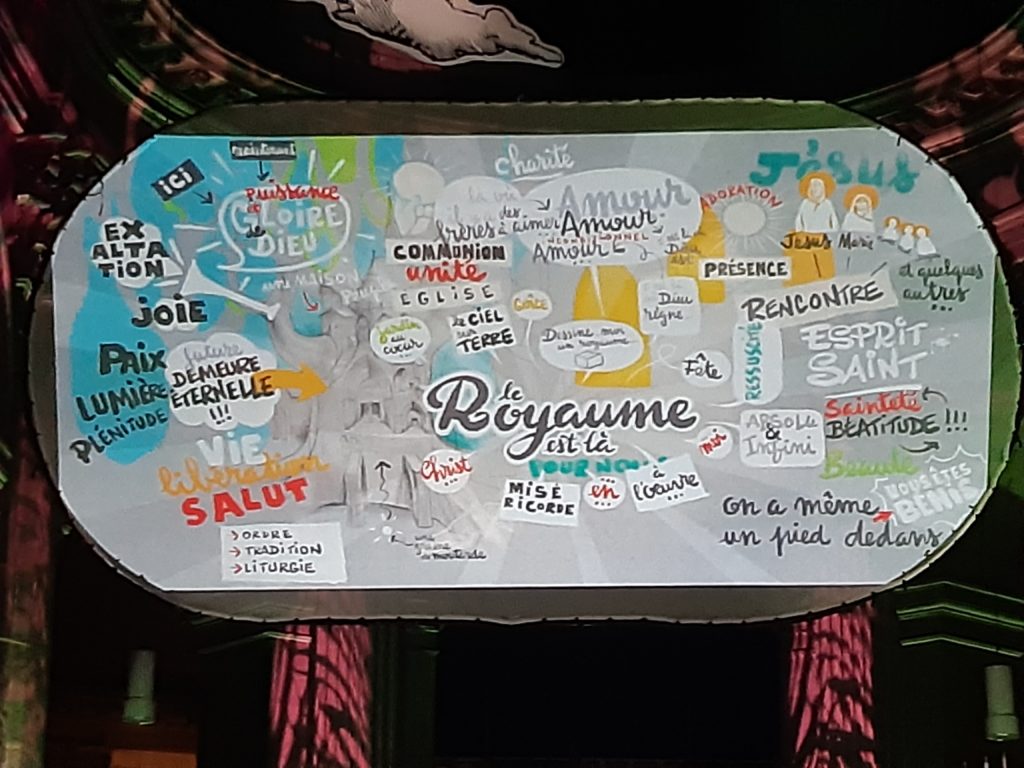 maintenant
ICI
Puissance
et
GLOIRE
de
DIEU
EX
ALTA
TION
JOIE
une MAISON
PAIX
LUMIÈRE
PLÉNITUDE
future
DEMEURE
ÉTERNELLE
!!!
VIE
libération
SALUT
> ORDRE
→ TRADITION
→ LITURGIE
charité
la vie
des
frères à aimer
Amour
Amour
INCONDITIONNEL
Amour
...
COMMUNION
unité
ÉGLISE
Grâce
jardin
au
cœur
...
le CIEL
sur
TERRE
Dessine-moi
un royaume
Dieu
règne
le
Royaume
est là
POUR NOUS
Christ
...
MISÉ
RICORDE
...
en
...
à
l'œuvre
...
une
graine
de moutarde
Jésus
ADORATION
Jésus Marie
et quelques
autres
...
PRÉSENCE
RENCONTRE
ESPRIT
SAINT
Fête
...
RESSUSCITÉ
moi
ABSOLU
&
Infini
Sainteté
BÉATITUDE !!!
Beauté
VOUS ÊTES
BÉNIS
on a même
un pied dedans